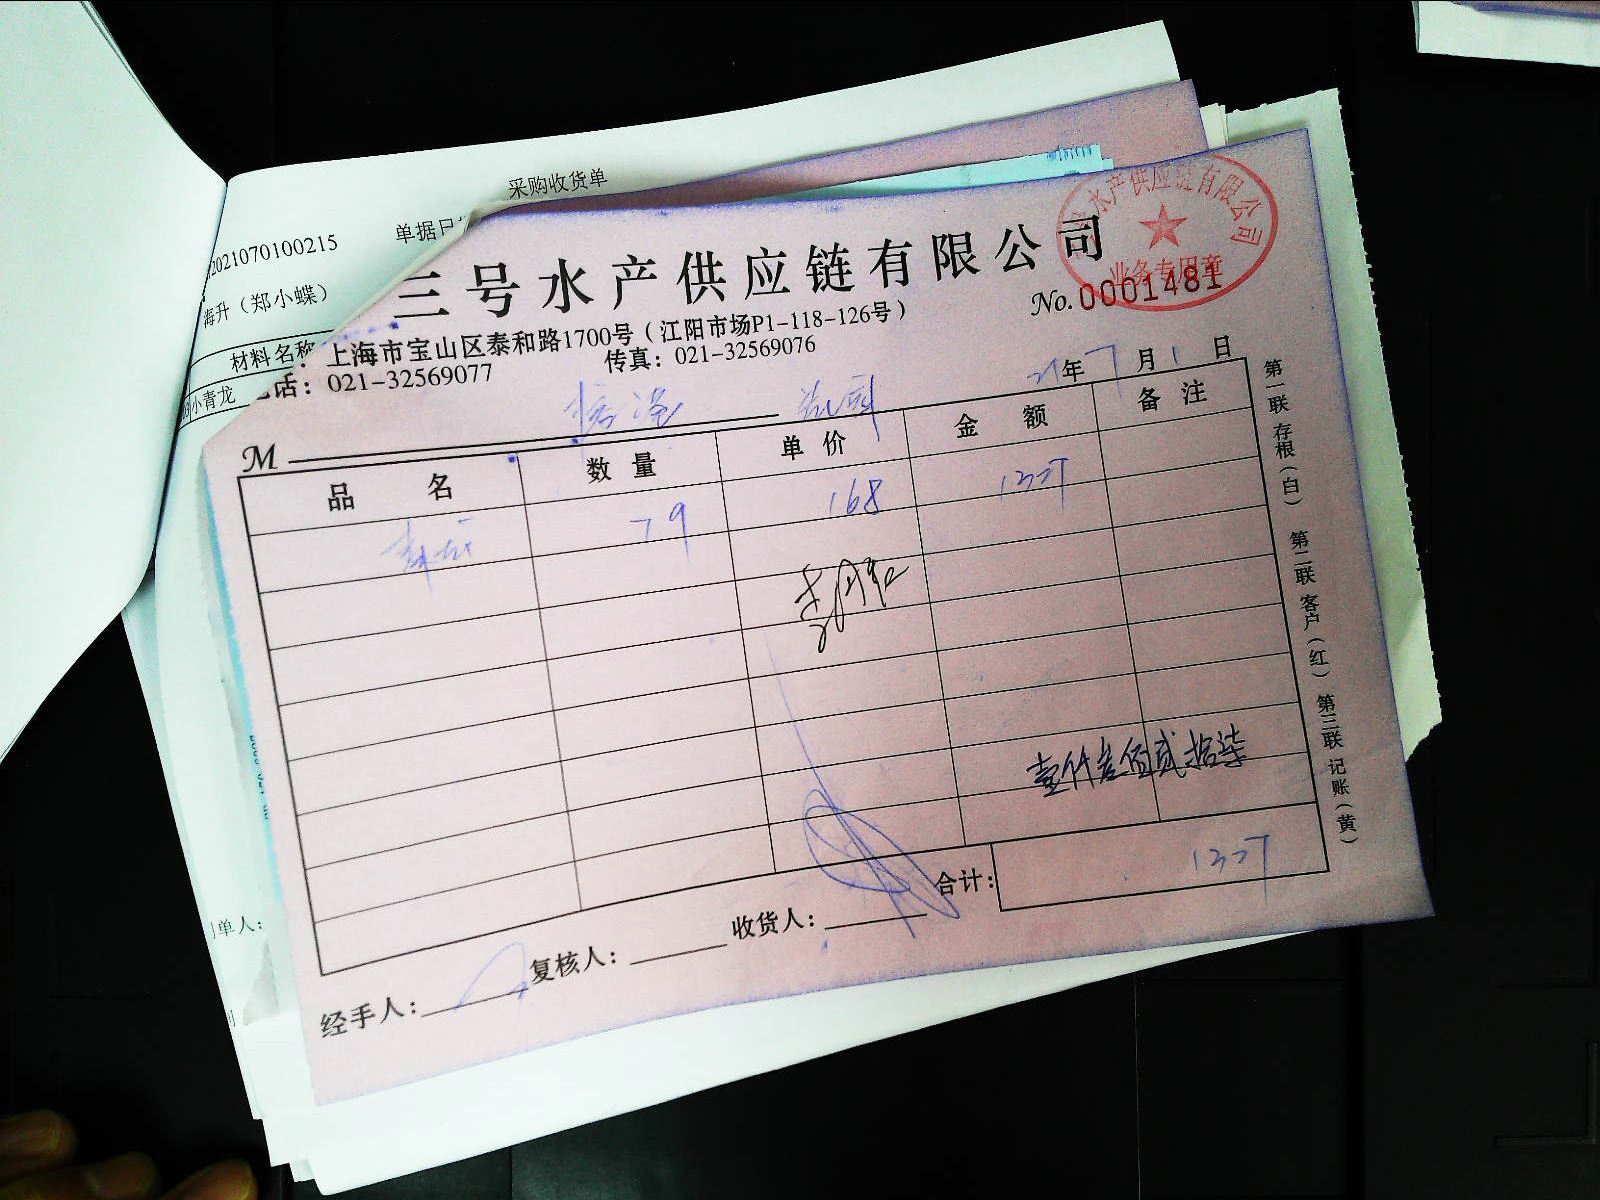 采购收货单
2021070100215
单据日
海升（郑小蝶）
材料名称
小青龙
三号水产供应链有限公司
水产供应链有限公司
业务专用章
No.0001481
上海市宝山区泰和路1700号（江阳市场P1-118-126号）
话：021-32569077 传真：021-32569076
21年7月1日
M
品名 数量 单价 金额 备注
79 168 1327
壹仟叁佰贰拾柒
合计： 1327
经手人： 复核人： 收货人：
第一联 存根（白） 第二联 客户（红） 第三联 记账（黄）
单人：